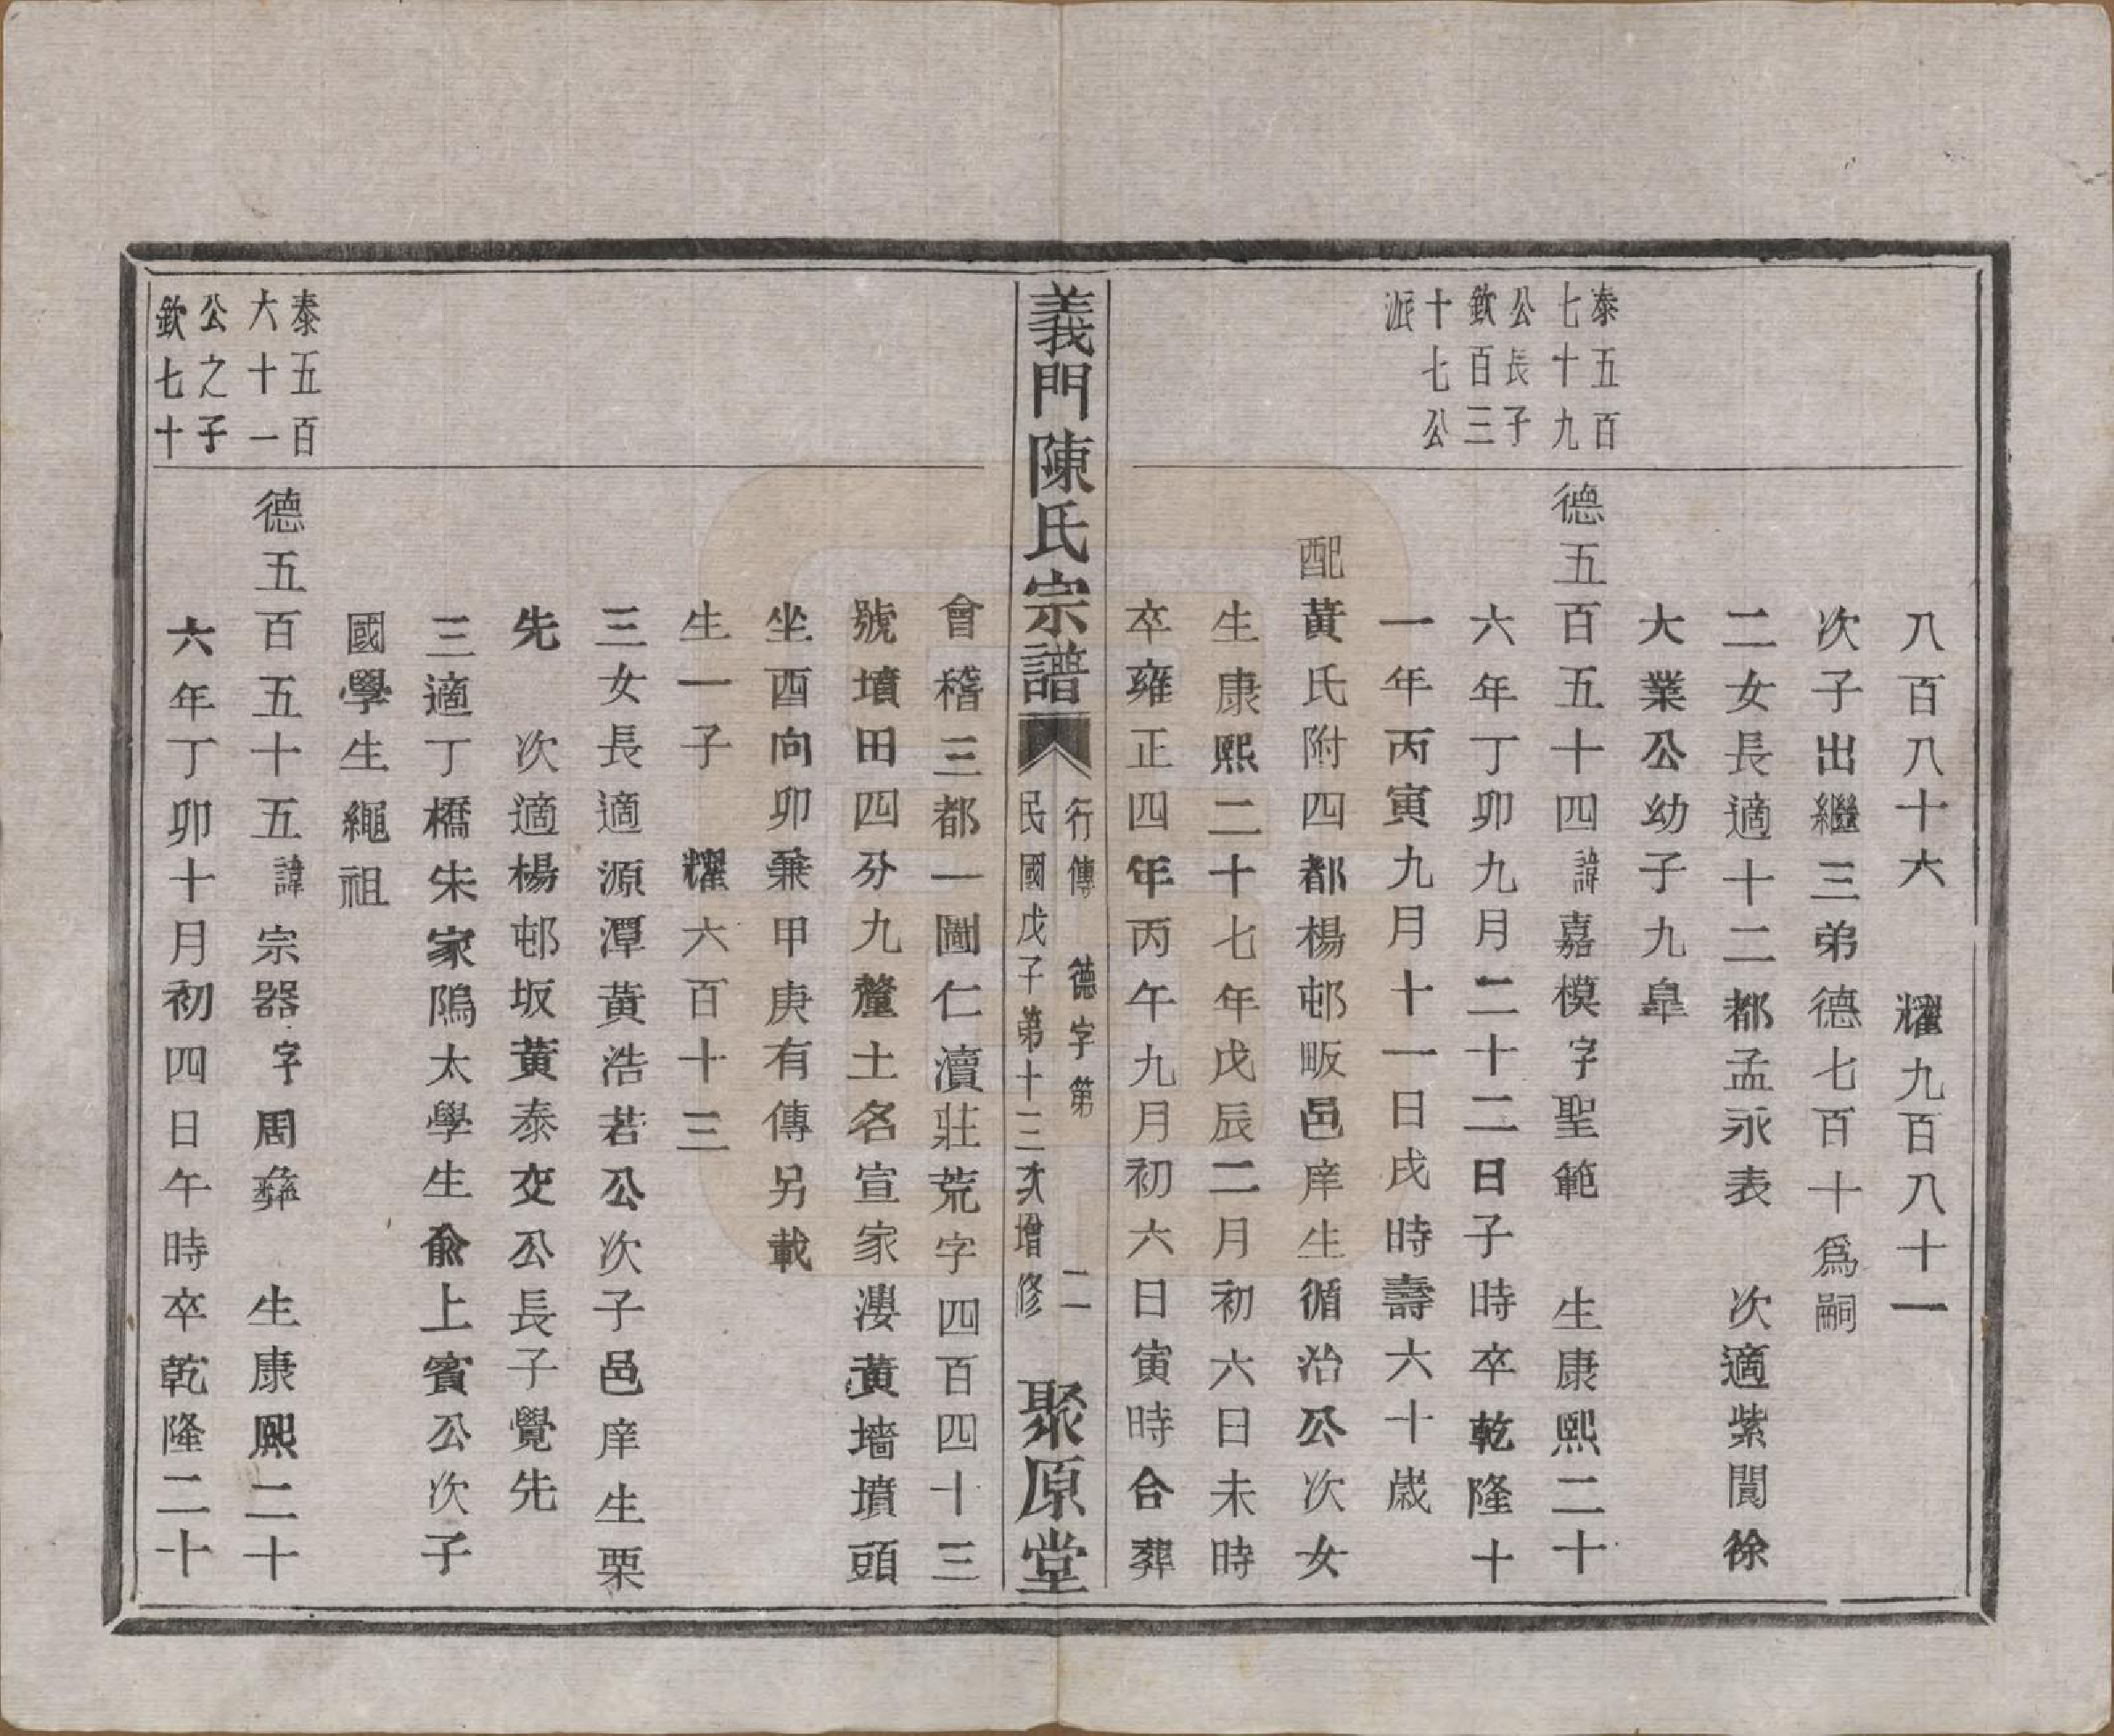 八百八十六　耀九百八十一
次子出繼三弟德七百十爲嗣
二女長適十二都孟永表　次適紫閬徐
大業公幼子九臯
泰五百
七十九
公長子
欽百三
十七公
派
德五百五十四諱嘉模字聖範　生康熙二十
六年丁卯九月二十二日子時卒乾隆十
一年丙寅九月十一日戌時壽六十歲
配黃氏附四都楊邨畈邑庠生循治公次女
生康熙二十七年戊辰二月初六日未時
卒雍正四年丙午九月初六日寅時合葬
義門陳氏宗譜
行傳　德字第　二
民國戊子第十三次增修
聚原堂
會稽三都一圖仁瀆莊荒字四百四十三
號墳田四分九釐土名宣家漊黃墻墳頭
坐酉向卯兼甲庚有傳另載
生一子　耀六百十三
三女長適源潭黃浩若公次子邑庠生栗
先　次適楊邨坂黃泰交公長子覺先
三適丁橋朱家隝太學生俞上賓公次子
國學生繩祖
泰五百
大十一
公之子
欽七十
德五百五十五諱宗器字周彝　生康熙二十
六年丁卯十月初四日午時卒乾隆二十